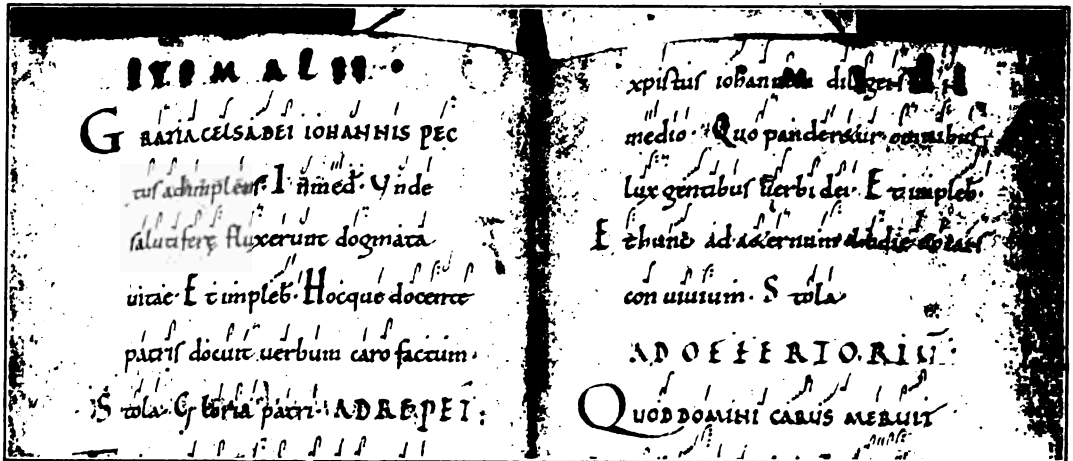 ITEM ALII.
GRATIA CELSA DEI IOHANNIS PEC
tus adimplens. Inmed. Unde
salutiferę fluxerunt dogmata
uitae. Et impleb. Hocque docente
patris docuit uerbum caro factum.
Stola. Gloria patri. AD REPET:
xpistus iohannem diligens
medio. Quo panderetur omnibus
lux gentibus uerbi dei. Et impleb.
Et hunc ad aeternum
conuiuium. Stola
AD OFFERTORIU
QUOD DOMINI CARUS MERUIT